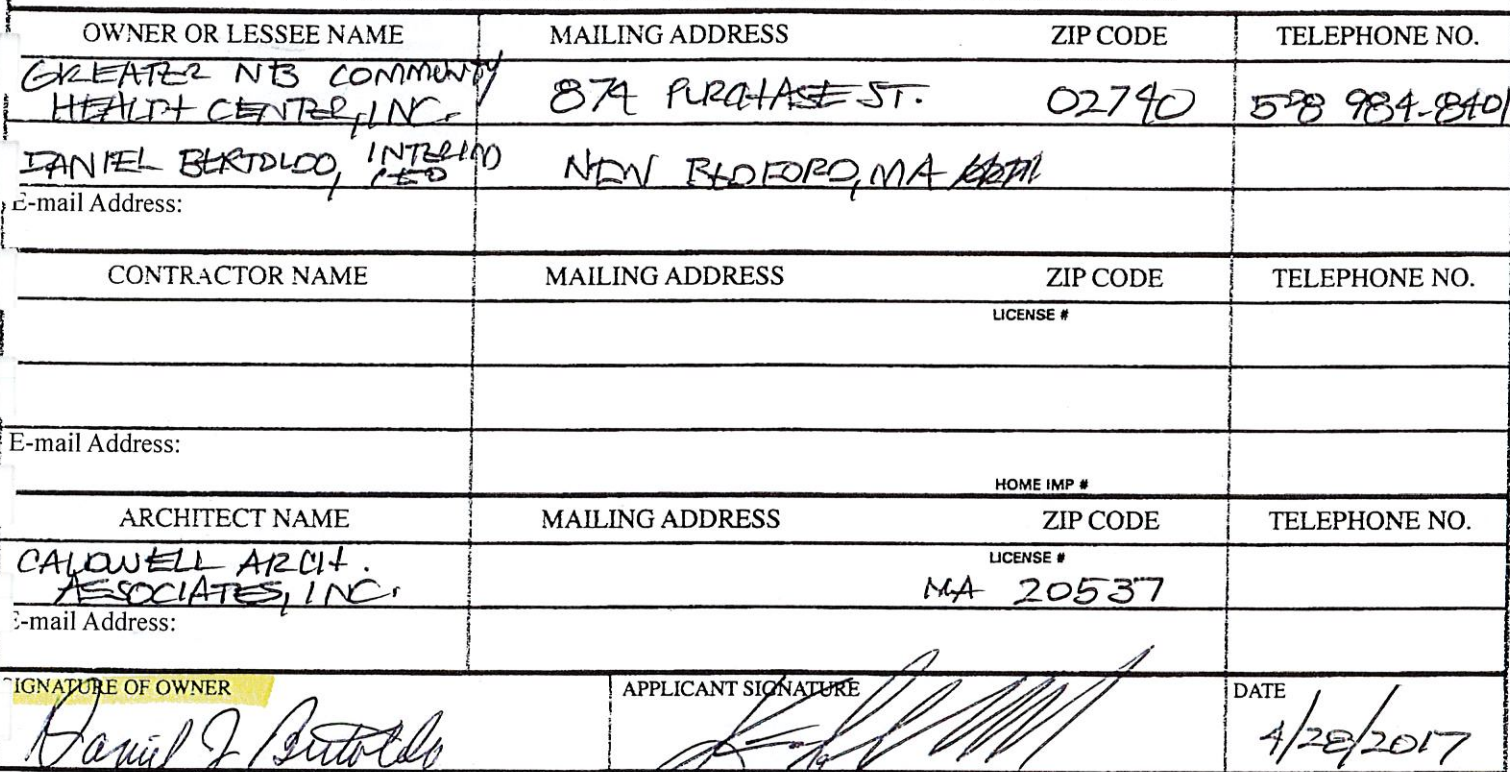 OWNER OR LESSEE NAME MAILING ADDRESS ZIP CODE TELEPHONE NO.
GREATER NB COMMUNITY
HEALTH CENTER, INC. 874 PURCHASE ST. 02740 508 984-8401
DANIEL BERTOLDO, INTERIM CEO NEW BEDFORD, MA
E-mail Address:
CONTRACTOR NAME MAILING ADDRESS ZIP CODE TELEPHONE NO.
LICENSE #
E-mail Address:
HOME IMP #
ARCHITECT NAME MAILING ADDRESS ZIP CODE TELEPHONE NO.
LICENSE #
CALDWELL ARCH.
ASSOCIATES, INC. MA 20537
E-mail Address:
SIGNATURE OF OWNER APPLICANT SIGNATURE DATE
Daniel J Bertoldo 4/28/2017